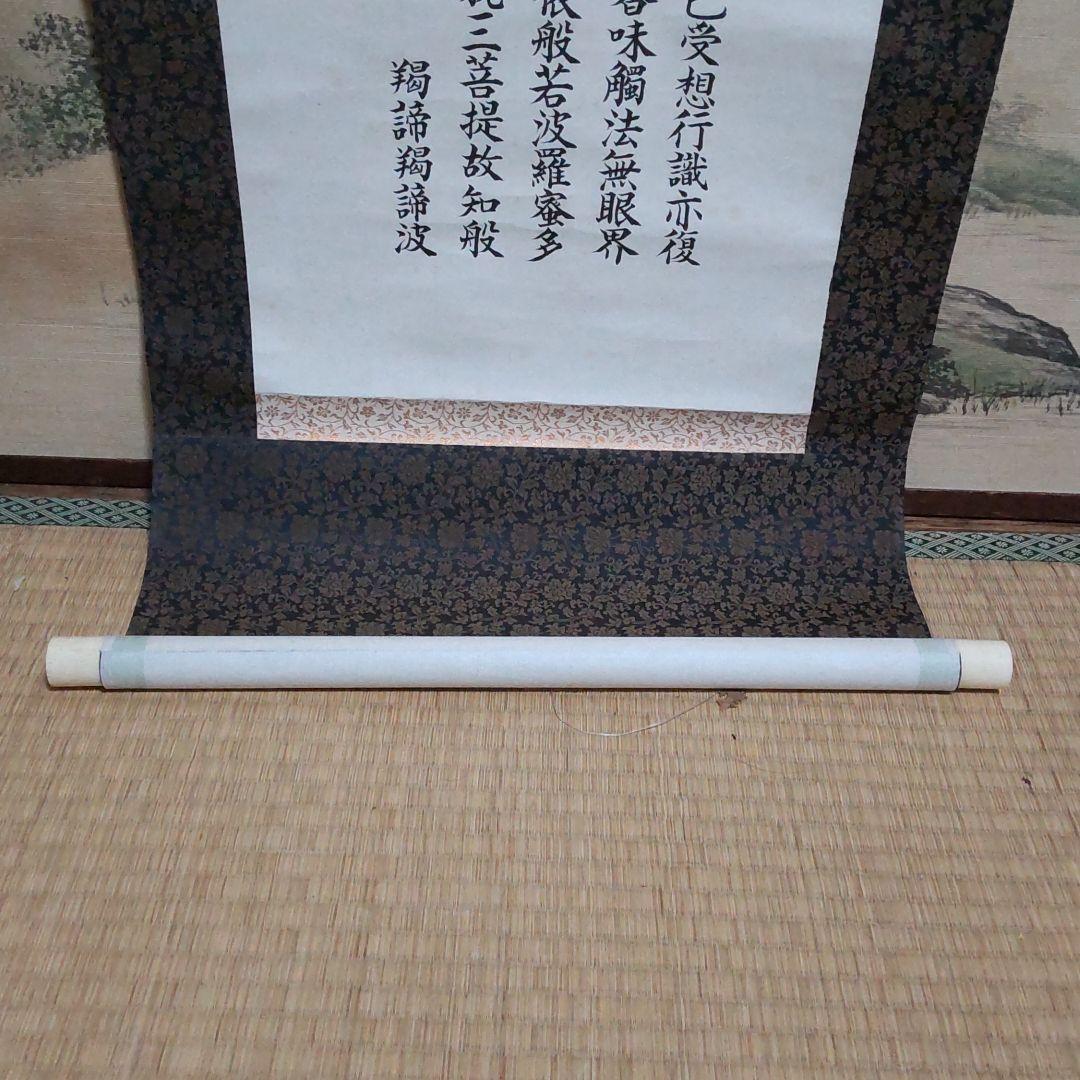 受想行識亦復
香味觸法無眼界
依般若波羅蜜多
三菩提故知般
羯諦羯諦波